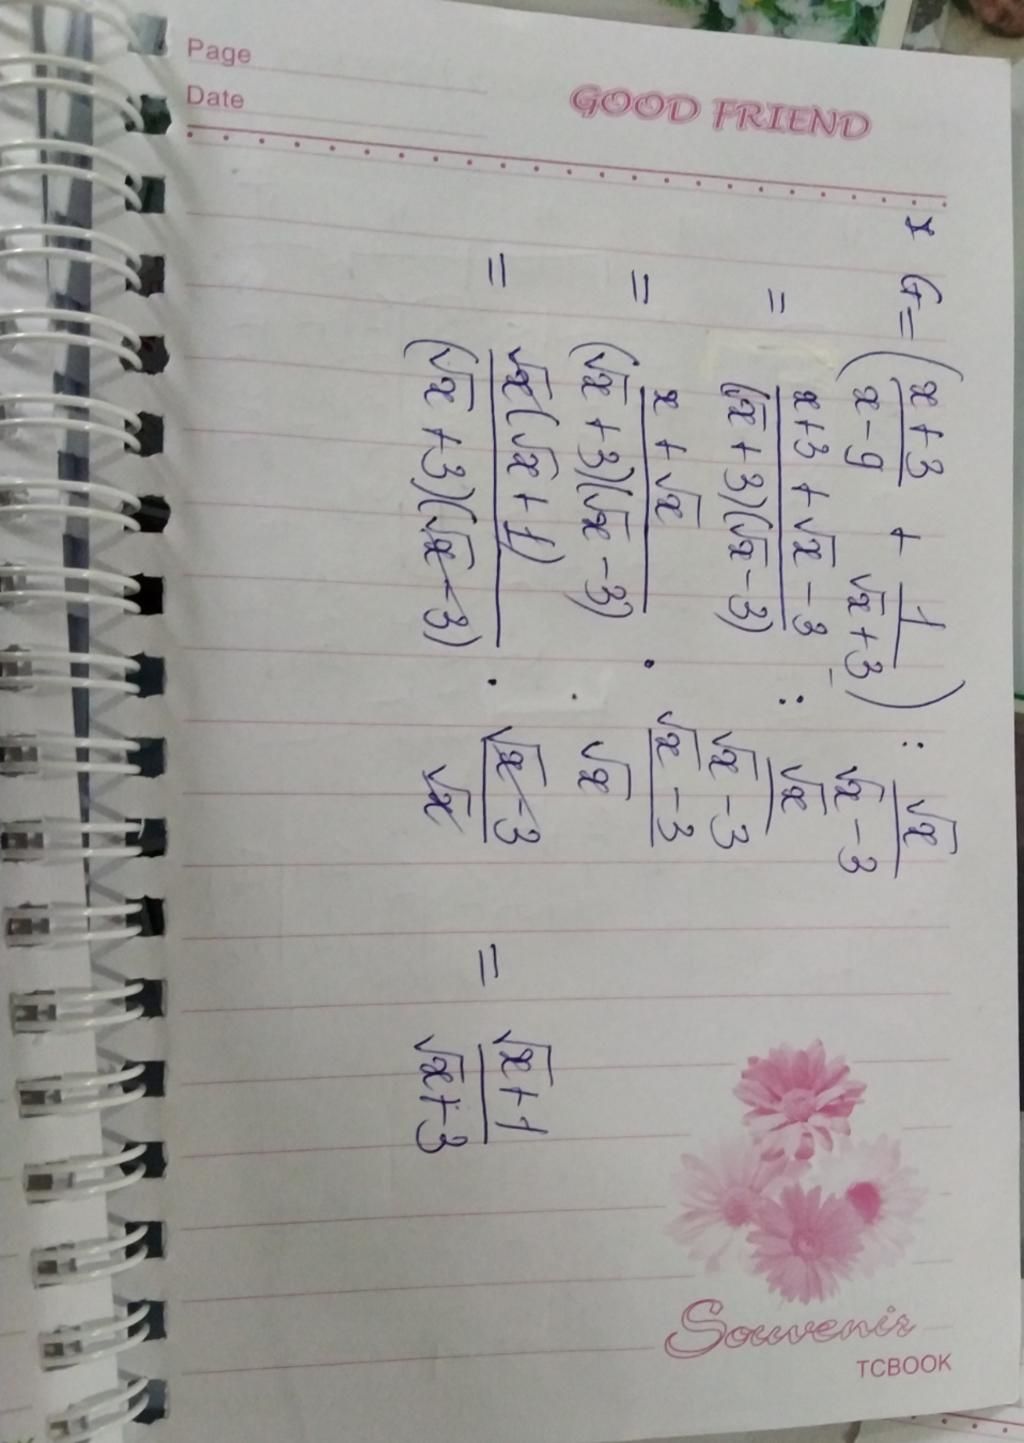 Page
Date
GOOD FRIEND
* G = ( (x+3)/(x-9) + 1/(√x+3) ) : √x/(√x-3)
= (x+3+√x-3)/((√x+3)(√x-3)) : √x/(√x-3)
= (x+√x)/((√x+3)(√x-3)) . (√x-3)/√x
= √x(√x+1)/((√x+3)(√x-3)) . (√x-3)/√x = (√x+1)/(√x+3)
Souvenir
TCBOOK